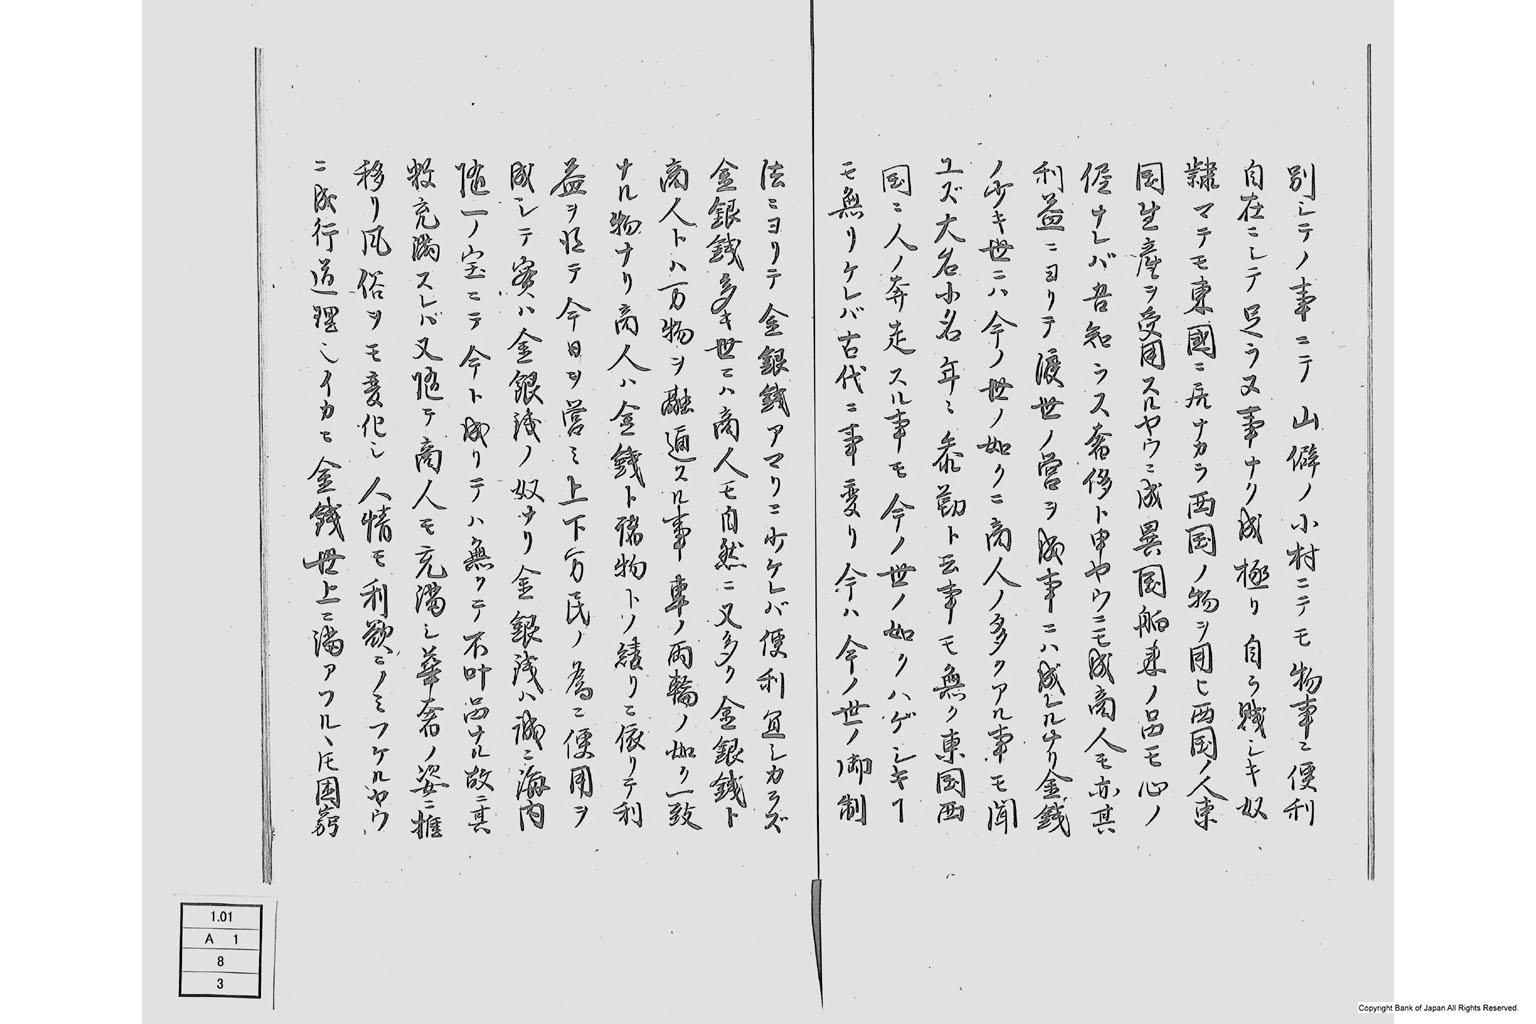 別シテノ事ニテ山僻ノ小村ニテモ物事ニ便利
自在ニシテ足ラヌ事ナク成極リ自ラ賤シキ奴
隷マテモ東國ニ居ナカラ西国ノ物ヲ用ヒ西国ノ人東
国生産ヲ受用スルヤウニ成異国舶来ノ品モ心ノ
侭ナレバ吾知ラス奢侈ト申ヤウニモ成商人モ亦其
利益ニヨリテ渡世ノ営ヲ成事ニハ成レルナリ金銭
ノ少キ世ニハ今ノ世ノ如クニ商人ノ多クアル事モ聞
エズ大名小名年ミ参勤ト云事モ無ク東国西
国ニ人ノ奔走スル事モ今ノ世ノ如クハゲシキヿ
モ無リケレバ古代ニ事変リ今ハ今ノ世ノ御制
法ニヨリテ金銀銭アマリニ少ケレバ便利宜シカラズ
金銀銭多キ世ニハ商人モ自然ニ又多ク金銀銭ト
商人トハ万物ヲ融通スル事車ノ両輪ノ如ク一致
ナル物ナリ商人ハ金銭ト諸物トノ繰リニ依リテ利
益ヲ得テ今日ヲ営ミ上下万民ノ為ニ便用ヲ
成シテ実ハ金銀銭ノ奴ナリ金銀銭ハ誠ニ海内
随一ノ宝ニテ今ト成リテハ無クテ不叶品ナル故ニ其
数充満スレバ又随テ商人モ充満シ華奢ノ姿ニ推
移リ風俗ヲモ変化シ人情モ利欲ニノミフケルヤウ
ニ成行道理也イカモ金銭世上ニ満アフルヽ𪜈困窮
1.01
A 1
8
3
Copyright Bank of Japan All Rights Reserved.